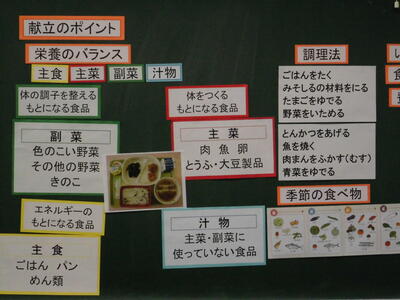 献立のポイント
栄養のバランス
主食 主菜 副菜 汁物
体の調子を整える
もとになる食品
副菜
色のこい野菜
その他の野菜
きのこ
エネルギーの
もとになる食品
主食
ごはん パン
めん類
体をつくる
もとになる食品
主菜
肉 魚 卵
とうふ・大豆製品
汁物
主菜・副菜に
使っていない食品
調理法
ごはんをたく
みそしるの材料をにる
たまごをゆでる
野菜をいためる
とんかつをあげる
魚を焼く
肉まんをふかす(むす)
青菜をゆでる
季節の食べ物